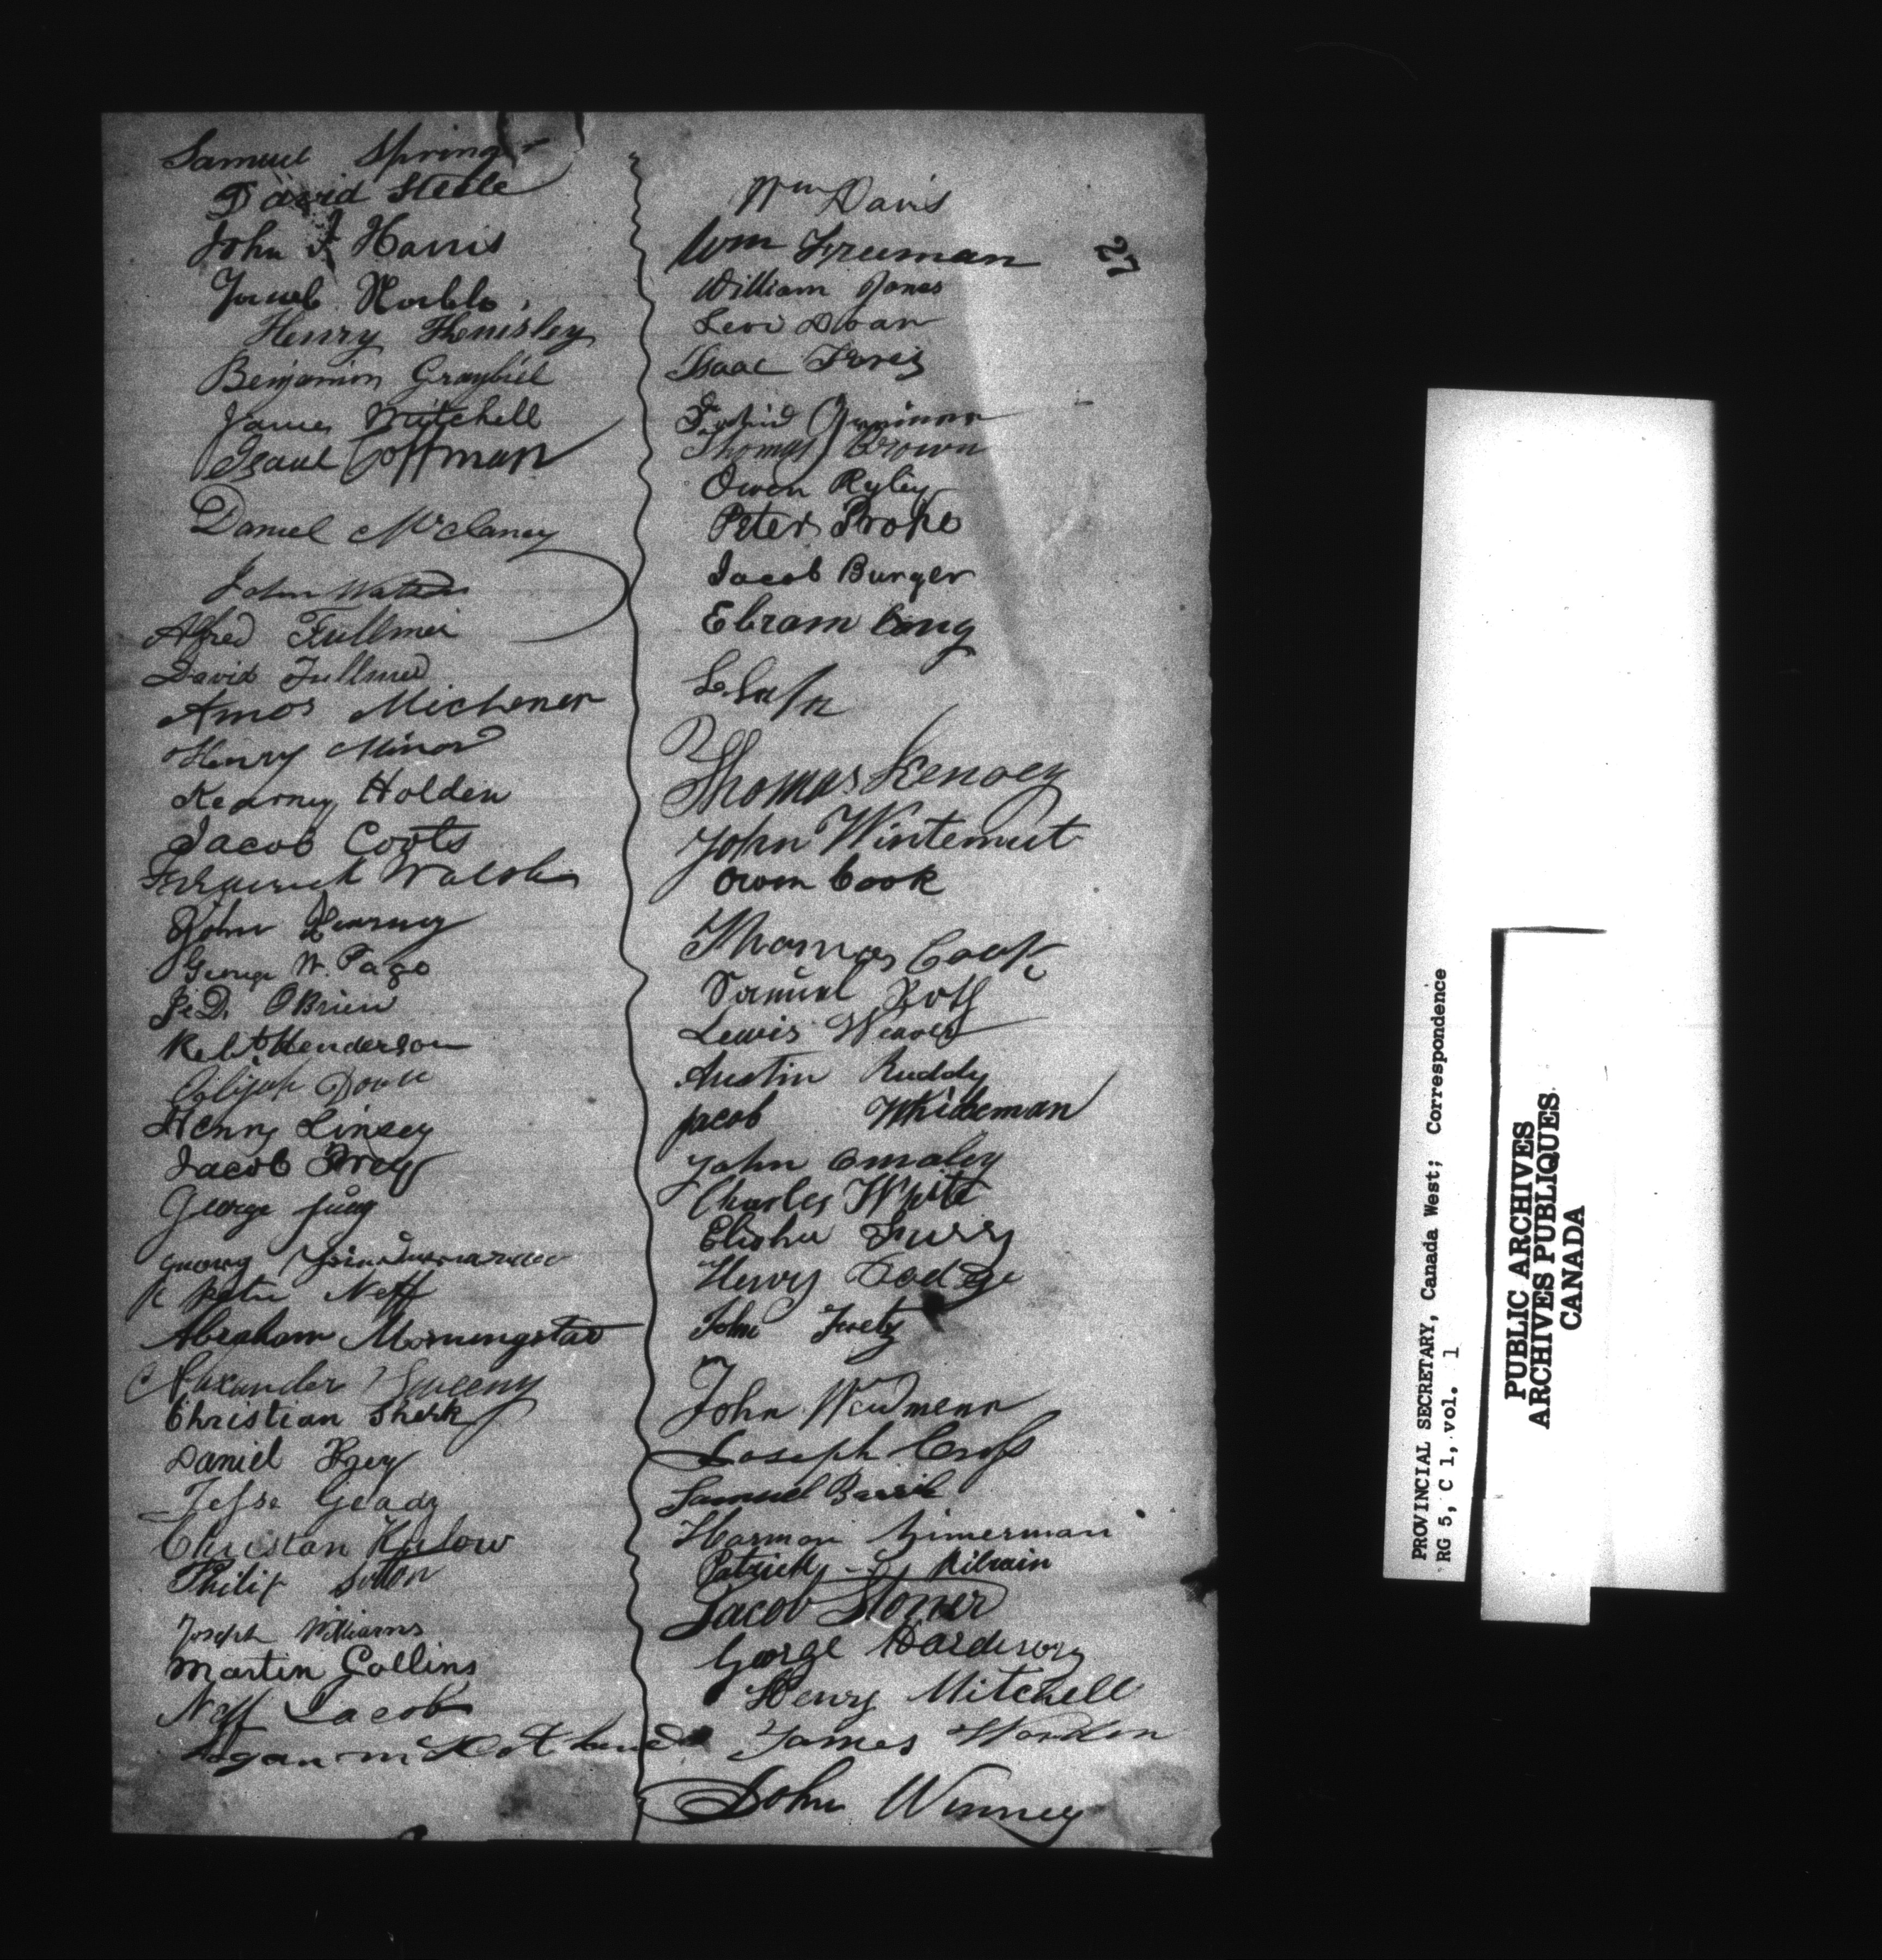 Samuel Springer
David Steele
John J Harris
Jacob Noble
Henry Hemsley
Benjamin Graybiel
James Mitchell
Isaac Coffman
Daniel McClaney
John Waters
Alfred Fullmer
David Fullmer
Amos Michener
Henry Minor
Kearney Holden
Jacob Coots
Frederick Walsh
John Kearney
George W. Page
J. D. O'Brien
Robt Henderson
Elijah Doan
Henry Linsey
Jacob Frey
George
Peter Neff
Abraham Morningstar
Alexander Sweeny
Christian Sherk
Daniel Frey
Jesse
Christan
Philip Sutton
Joseph Williams
Martin Collins
Neff Jacob
Logan
Wm Davis
Wm Freeman
William Jones
Levi Doan
Isaac
Thomas Brown
Owen Ryley
Peter
Jacob Burger
Ebram
Thomas
John Wintemut
Owen Cook
Thomas Cook
Samuel Roth
Lewis Weaver
Austin Ruddy
Jacob Whideman
John Omaley
Charles White
Elisha Furry
Henry Dodge
John
John Widmenn
Joseph Cross
Samuel
Harmon Zimerman
Patrick Kilrain
Jacob Stoner
George Hardison
Henry Mitchell
James Worden
John Winney
27
PROVINCIAL SECRETARY, Canada West; Correspondence
RG 5, C 1, vol. 1
PUBLIC ARCHIVES
ARCHIVES PUBLIQUES
CANADA